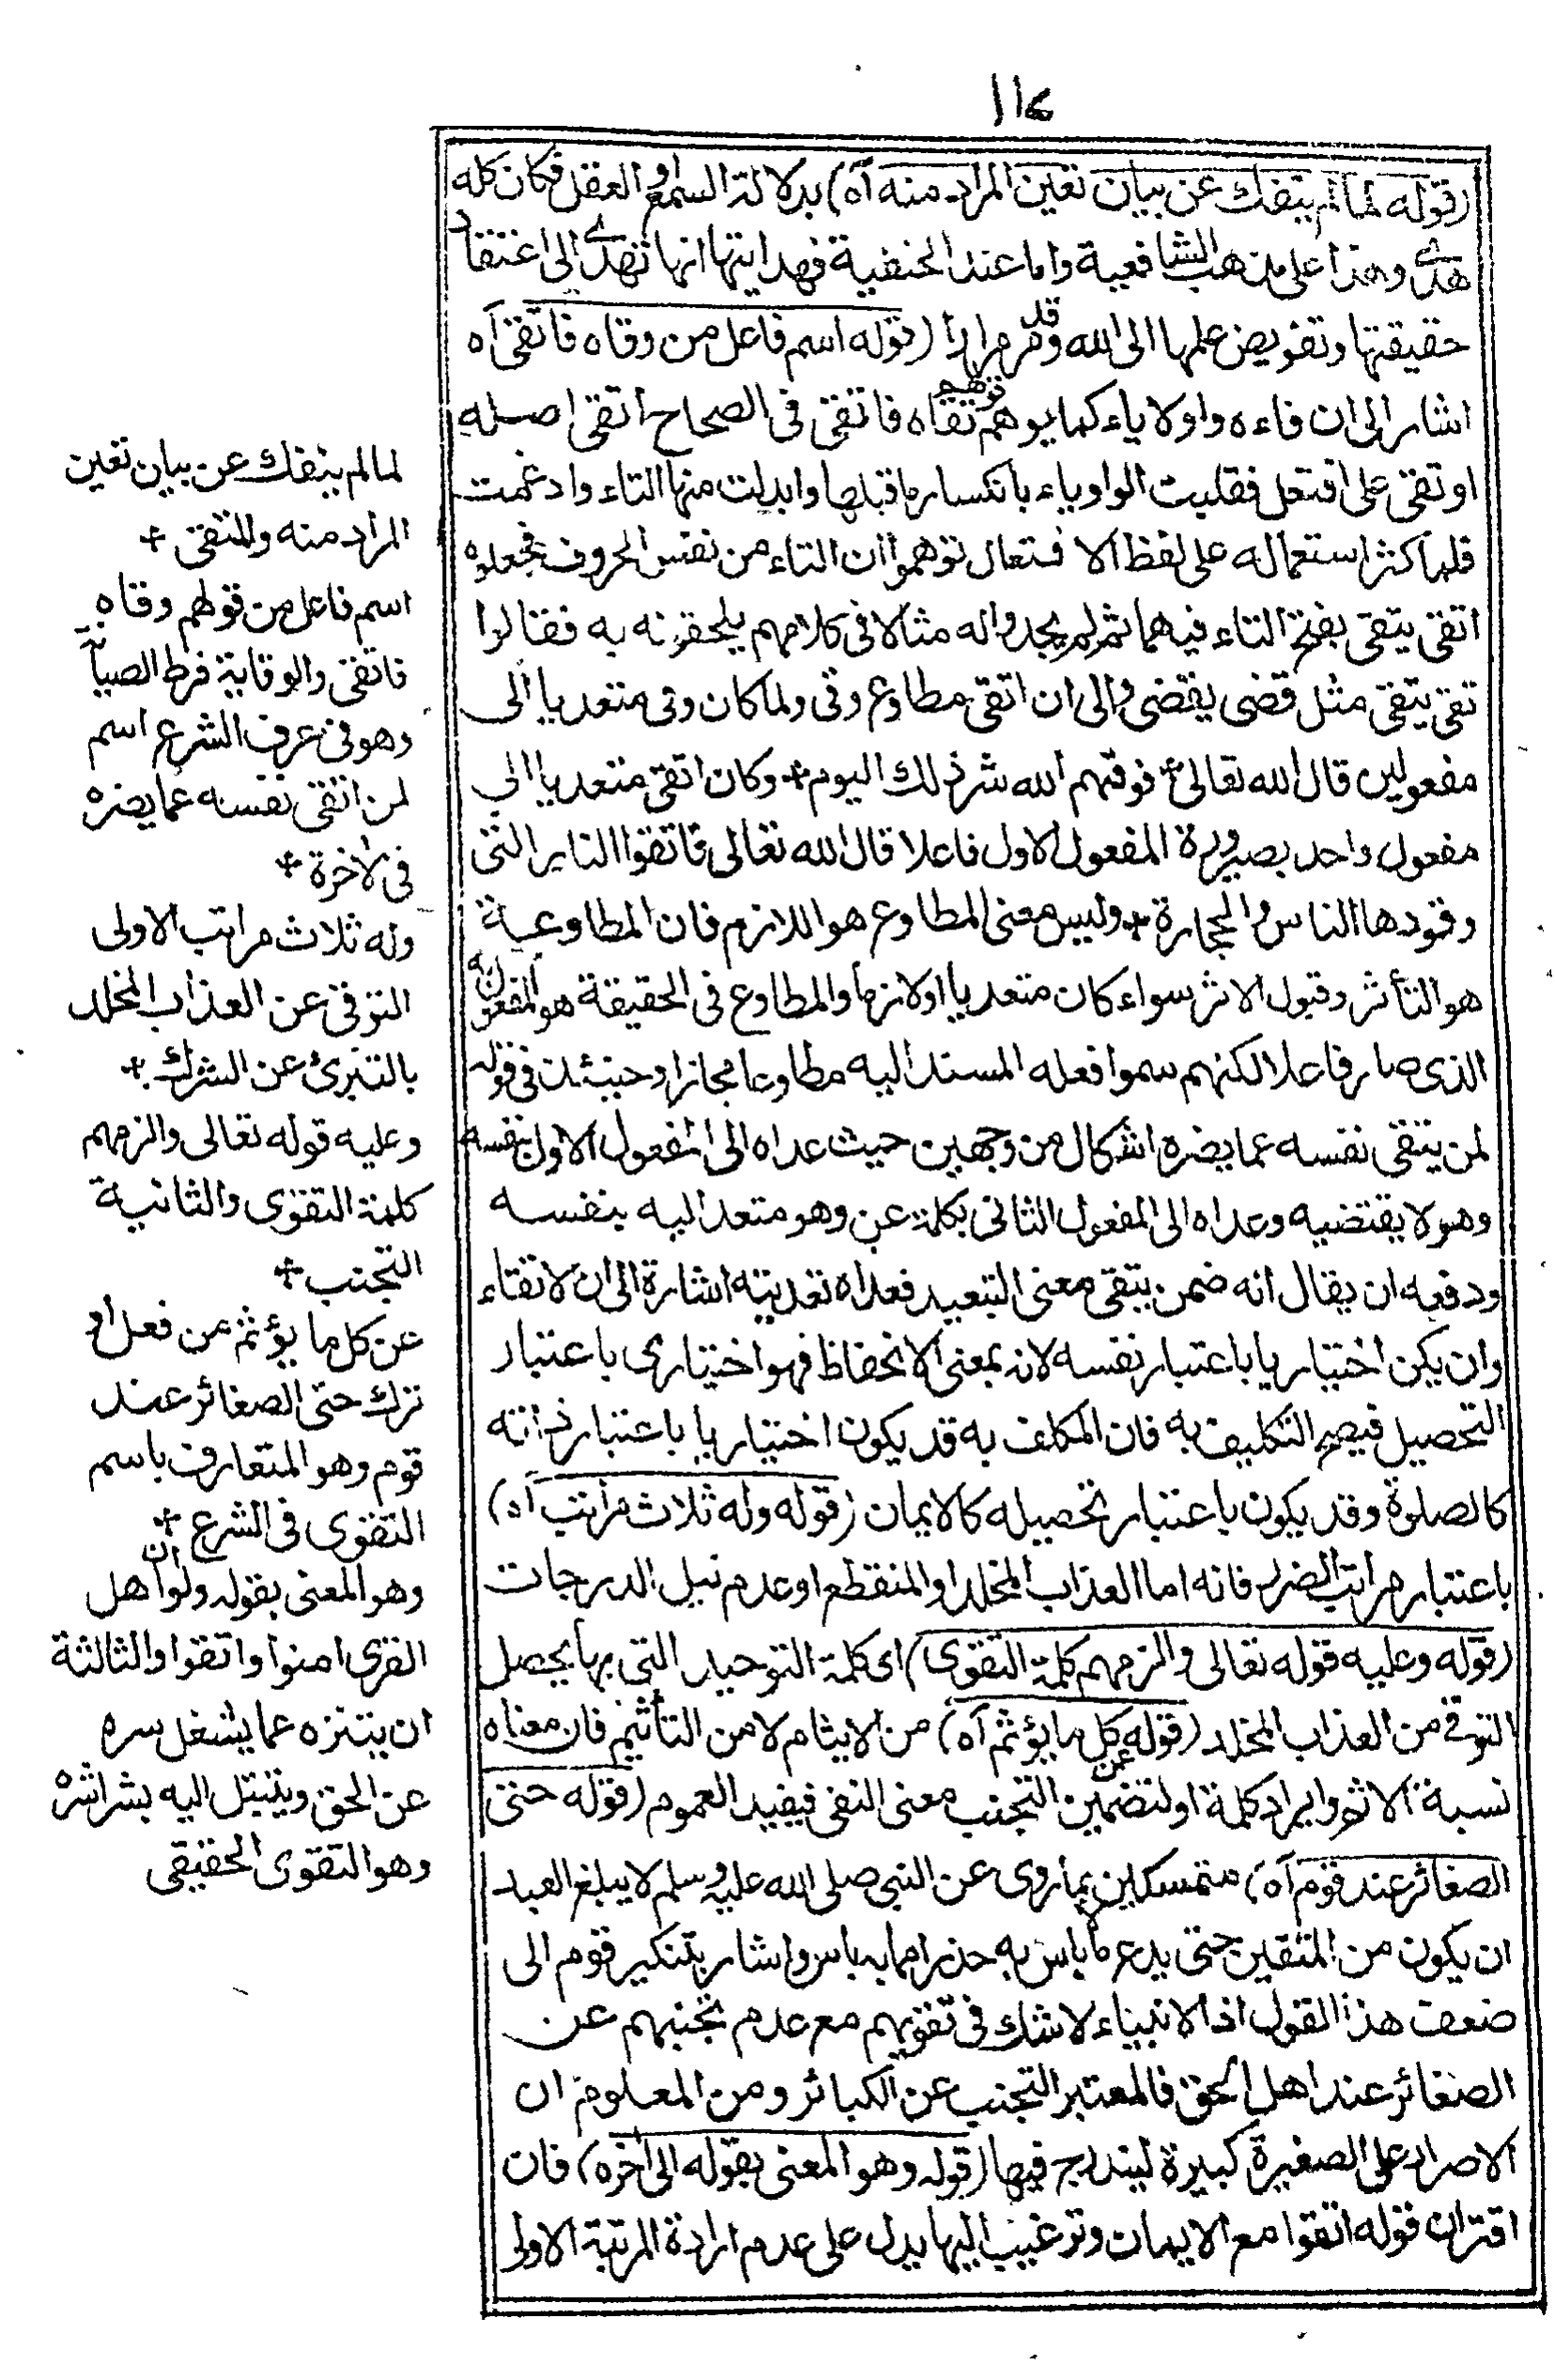 ١١٤
(قوله لما لم ينفك عن بيان تعين المراد منه آه) بدلالة السمع او العقل فكان كله
هدى وهذا على مذهب الشافعية واما عند الحنفية فهدايتها انها تهدى الى اعتقاد
حقيقتها وتفويض علمها الى الله وقد مر مرارا (قوله اسم فاعل من وقاه فاتقى آه
اشار الى ان فاءه واو لا ياء كما يوهم توهم تقاه فاتقى فى الصحاح اتقى اصله
اوتقى على افتعل فقلبت الواو ياء بانكسار ما قبلها وابدلت منها التاء وادغمت
فلما كثر استعماله على لفظ الافتعال توهموا ان التاء من نفس الحروف فجعلوه
اتقى يتقى بفتح التاء فيهما ثم لم يجدوا له مثالا فى كلامهم يلحقونه به فقالوا
تقى يتقى مثل قضى يقضى والى ان اتقى مطاوع وقى ولما كان وقى متعديا الى
مفعولين قال الله تعالى + فوقهم الله شر ذلك اليوم + وكان اتقى متعديا الى
مفعول واحد بصيرورة المفعول الاول فاعلا قال الله تعالى فاتقوا النار التى
وقودها الناس والحجارة + وليس معنى المطاوع هو اللازم فان المطاوعة
هو التأثر وقبول الاثر سواء كان متعديا او لازما والمطاوع فى الحقيقة هو المفعول به
الذى صار فاعلا لكنهم سموا فعله المسند اليه مطاوعا مجازا وحينئذ ففى قوله
لمن يتقى نفسه عما يضره اشكال من وجهين حيث عداه الى المفعول الاول بنفسه
وهو لا يقتضيه وعداه الى المفعول الثانى بكلمة عن وهو متعد اليه بنفسه
ودفعه ان يقال انه ضمن يتقى معنى التبعيد فعداه تعديته اشارة الى ان الاتقاء
وان يكن اختياريا باعتبار نفسه لانه بمعنى الانحفاظ فهو اختيارى باعتبار
التحصيل فيصح التكليف به فان المكلف به قد يكون اختياريا باعتبار ذاته
كالصلوة وقد يكون باعتبار تحصيله كالايمان (قوله وله ثلاث مراتب آه)
باعتبار مراتب الضرر فانه اما العذاب المخلد او المنقطع او عدم نيل الدرجات
(قوله وعليه قوله تعالى والزمهم كلمة التقوى) اى كلمة التوحيد التى بها يحصل
التوقى من العذاب المخلد (قوله عن كل ما يؤثم آه) من الايثام لا من التأثيم فان معناه
نسبة الاثم وايراد كلمة او لتضمين التجنب معنى النفى فيفيد العموم (قوله حتى
الصغائر عند قوم آه) متمسكين بما روى عن النبى صلى الله عليه وسلم لا يبلغ العبد
ان يكون من المتقين حتى يدع ما لا باس به حذرا مما به باس واشار بتنكير قوم الى
ضعف هذا القول اذ الانبياء لا شك فى تقويهم مع عدم تجنبهم عن
الصغائر عند اهل الحق فالمعتبر التجنب عن الكبائر ومن المعلوم ان
الاصرار على الصغيرة كبيرة ليندرج فيها (قوله وهو المعنى بقوله الى آخره) فان
اقتران قوله اتقوا مع الايمان وترغيب اليها يدل على عدم ارادة المرتبة الاولى
لما لم ينفك عن بيان تعين
المراد منه والمتقى +
اسم فاعل من قولهم وقاه
فاتقى والوقاية فرط الصيانة
وهو فى عرف الشرع اسم
لمن اتقى نفسه عما يضره
فى الآخرة +
وله ثلاث مراتب الاولى
التوقى عن العذاب المخلد
بالتبرئ عن الشرك +
وعليه قوله تعالى والزمهم
كلمة التقوى والثانية
التجنب +
عن كل ما يؤثم من فعل او
ترك حتى الصغائر عند
قوم وهو المتعارف باسم
التقوى فى الشرع +
وهو المعنى بقوله ولو ان اهل
القرى امنوا واتقوا والثالثة
ان يتنزه عما يشغل سره
عن الحق ويتبتل اليه بشراشره
وهو التقوى الحقيقى